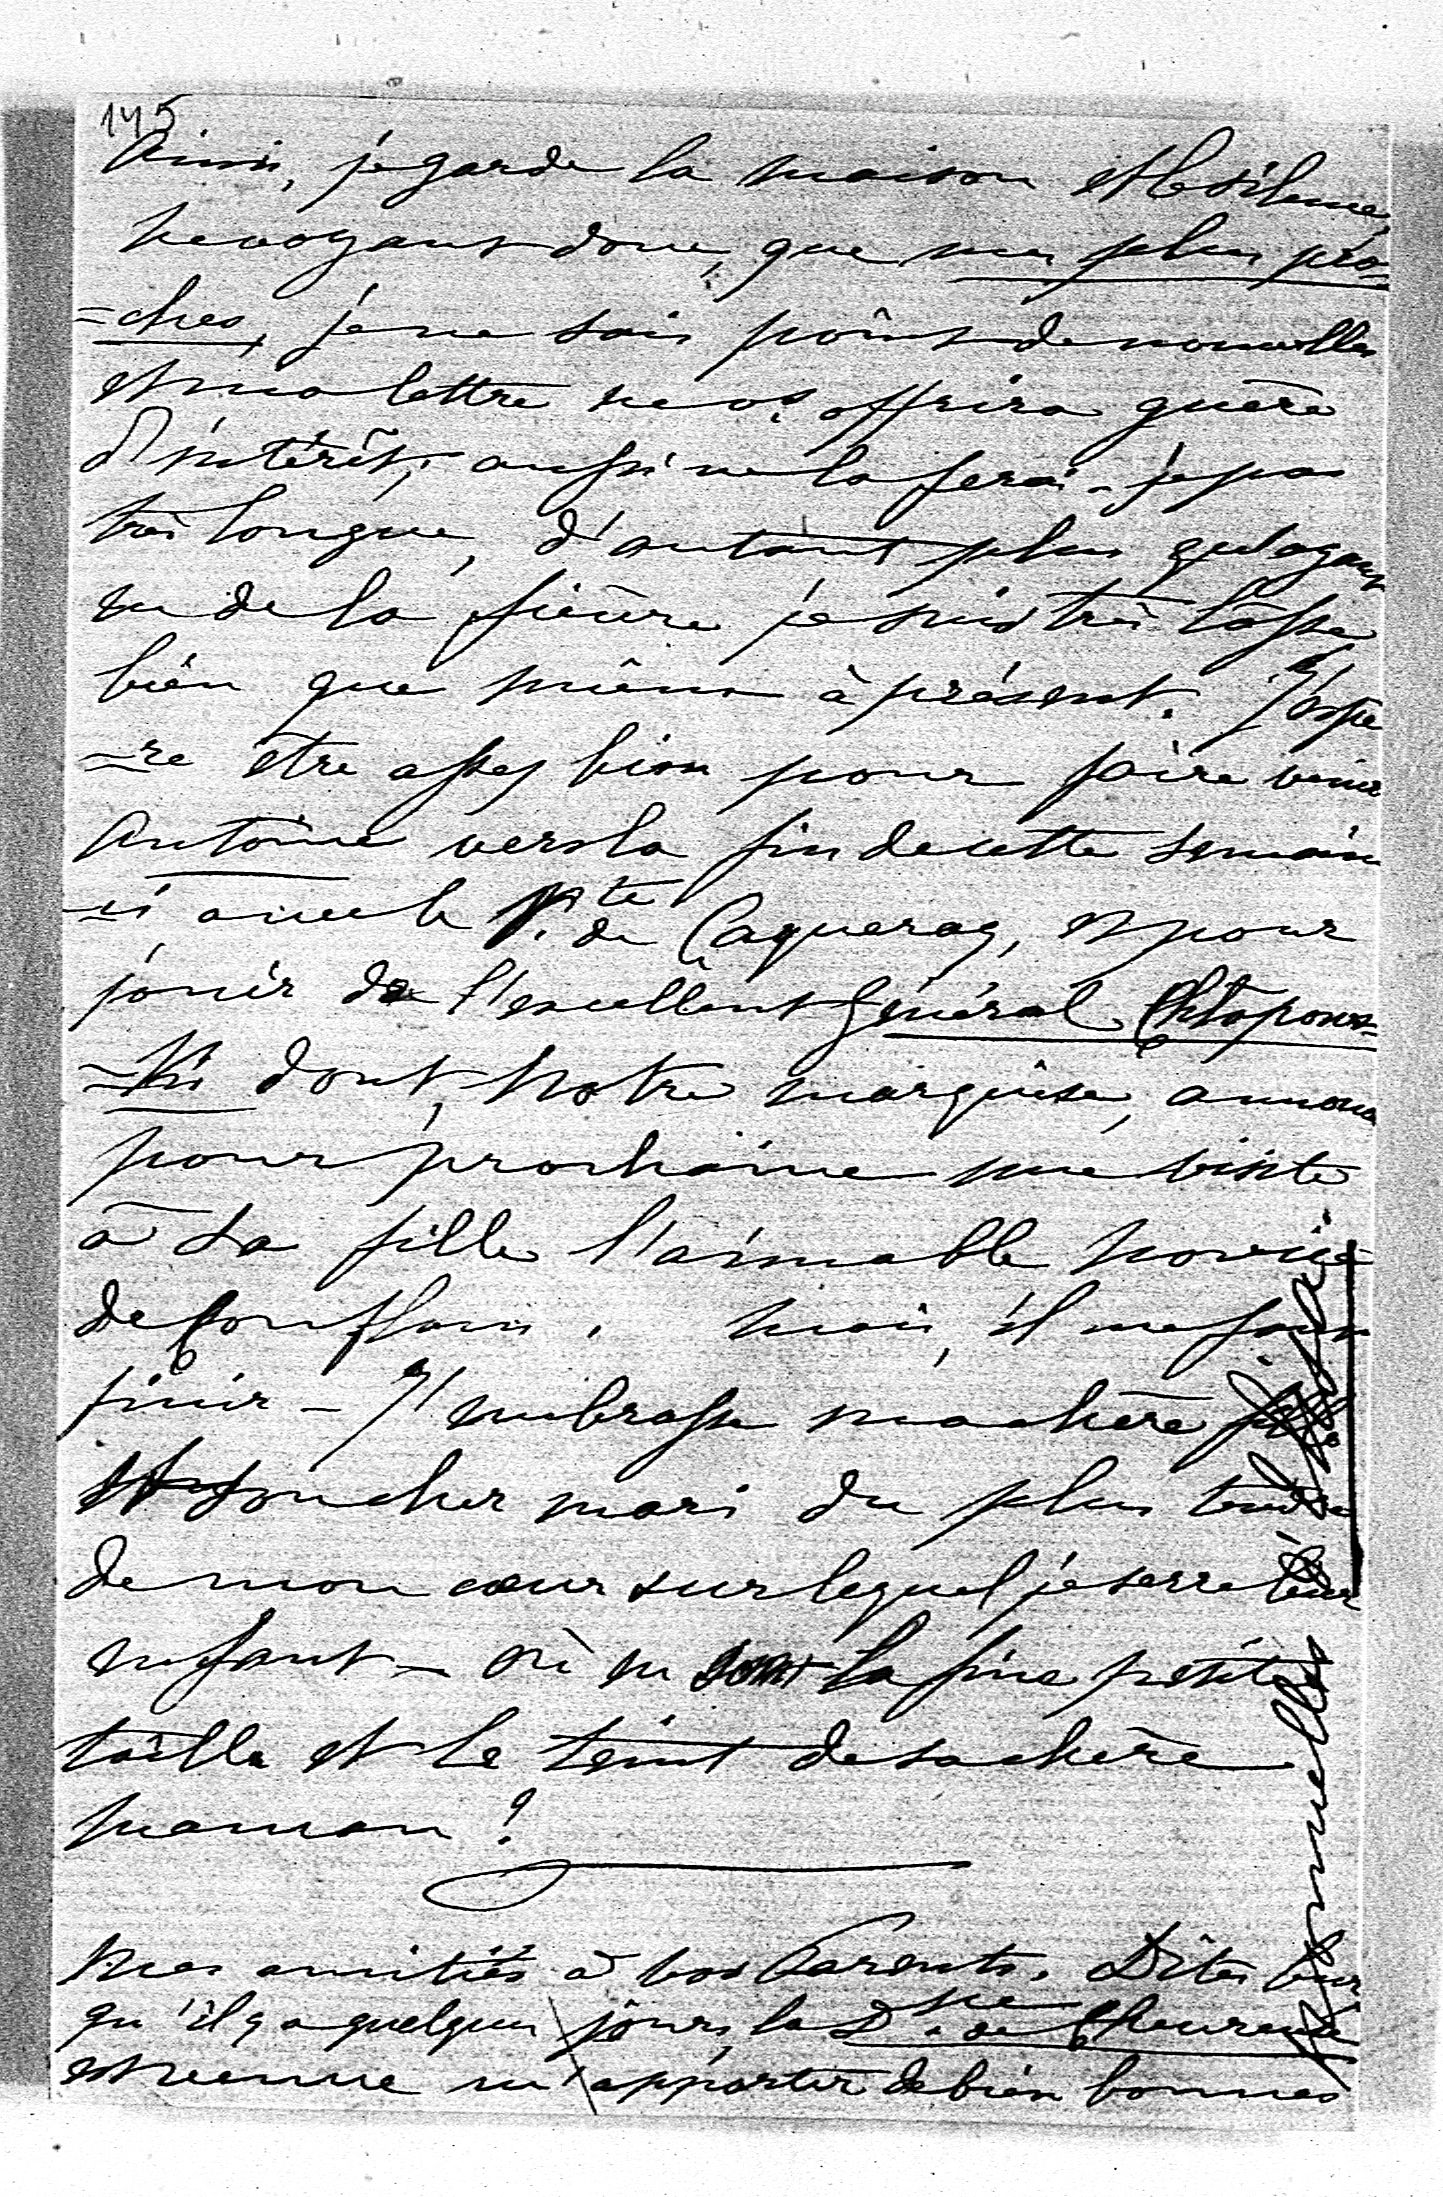 145
Ainsi, je garde la maison et le silence,
ne voyant donc, que mes plus pro=
=ches, je ne sais point de nouvelles
et ma lettre ne vs offrira guère
d'intérêt, aussi ne la ferai-je pas
très longue, d'autant plus qu'ayant
eu de la fièvre je suis très lasse
bien que mieux à présent. J'espè
=re être assez bien pour faire venir
Antoine vers la fin de cette semaine
=ci avec le Vte de Caqueray, et pour
jouir de l'excellent Général Chlapows=
=ki dont, notre marquise, annonce
pour prochaine une visite
à sa fille l'aimable novice
de Conflans. Mais, il me faut
finir - J'embrasse ma chère
et son cher mari du plus tendre
de mon cœur sur lequel je serre leur
enfant - où en sont la fine petite
taille et le teint de sa chère
maman?
Mes amitiés à vos Parents. Dites leur
qu'il y a quelques jours, la Dsse de Chevreuse
est venue m'apporter de bien bonnes
nouvelles